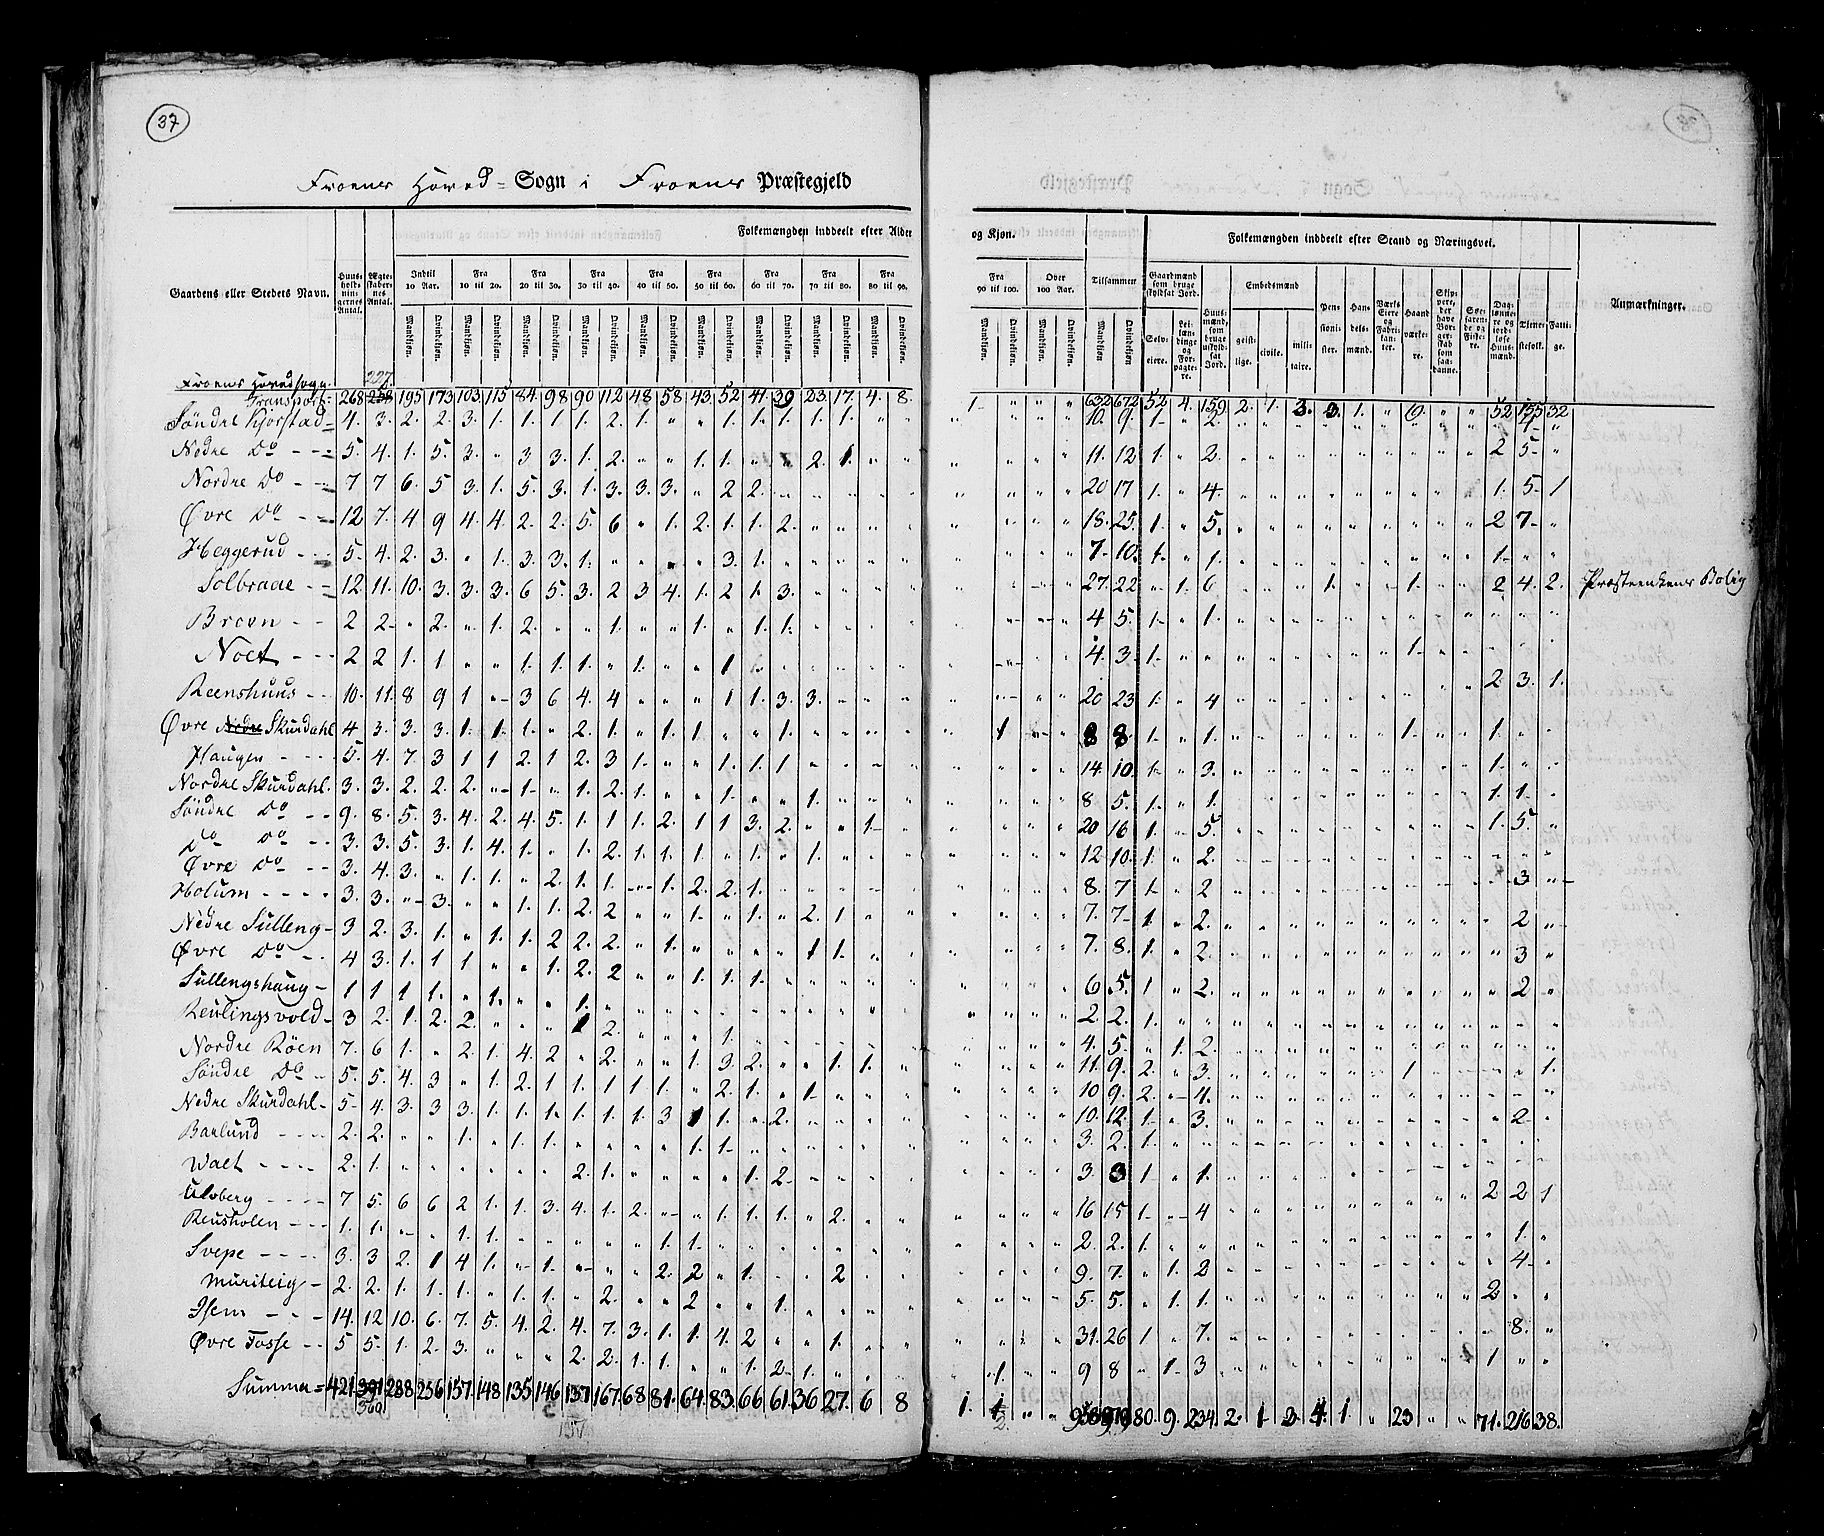 37
Froens Hoved = Sogn i Froens Præstegjeld
Gaardens eller Steders Navn.
Huusholdningernes Antal.
Ægteskabernes Antal.
Folkemængden inddeelt efter Alder
Indtil 10 Aar.
Fra 10 til 20.
Fra 20 til 30.
Fra 30 til 40.
Fra 40 til 50.
Fra 50 til 60.
Fra 60 til 70.
Fra 70 til 80.
Fra 80 til 90.
Mandkiøn. Qvindekiøn.
og Kjøn.
Fra 90 til 100.
Over 100 Aar.
Tilsammen
Folkemængden inddeelt efter Stand og Næringsvei.
Gaardmænd som bruge skyldsat Jord.
Selveiere.
Leilændinge og Forpagtere.
Huusmænd, som bruge uskyldsat Jord.
Embedsmænd
geistlige.
civile.
militaire.
Pensionister.
Handelsmænd.
Værks Eiere og Fabrikanter.
Haandværkere.
Skippere, der have Borgerskab som saadanne.
Søefarende og Fiskere.
Dagleiere og jordløse Huusmænd.
Tjenestefolk.
Fattige.
Anmærkninger.
Froens Hovedsogn
Transport = 268 258 195 173 103 115 84 98 90 112 48 58 43 52 41 39 23 17 4 8 1 632 672 52 4 159 2 1 3 3 1 52 155 32
Søndre Kjorstad 4 3 2 2 3 1 1 1 1 2 1 " " 1 1 1 1 1 1 " " 10 9 1 " 2
Nedre Do 5 4 1 5 3 " 3 3 1 2 " " 1 1 " " 2 1 " " 11 12 1 " 2 2 5 "
Nordre Do 7 7 6 5 3 1 5 3 1 3 3 3 " 2 2 20 17 1 " 4 1 5 1
Øvre Do 12 7 4 9 4 4 2 2 5 6 " 1 2 1 1 2 18 25 1 " 5 2 7 "
Heggerud 5 4 2 3 " 1 3 3 1 " " " " 3 1 7 10 1 " 1 1 " "
Solbraae 12 11 10 3 3 3 6 5 3 2 3 4 1 2 1 3 27 22 " 1 6 1 1 2 4 2 Præsteenkens Bolig
Broen 2 2 " 2 " 1 2 " " 1 " " 1 " 1 1 4 5 1 " 1
Noet 2 2 1 1 " " 1 1 1 " 1 " " 1 4 3 1 1
Reenshuus 10 11 8 9 1 " 3 6 4 4 " " " 1 1 3 3 20 23 1 " 4 2 3 1
Øvre Nedre Skurdahl 4 3 3 3 1 1 1 " 2 1 " 1 1 " " 1 1 8 8 1 " 1 1 1
Haugen 5 4 7 3 1 1 2 1 2 3 1 " " 1 1 1 14 10 1 " 3 1
Nordre Skurdahl 3 3 2 2 2 " 1 " 1 2 1 " " 1 " " 1 8 5 1 " 1 1 1
Søndre Do 9 8 5 3 4 2 4 5 1 1 1 2 1 1 3 2 " " 1 20 16 1 " 5 1 5 "
Do Do 3 3 5 3 1 4 1 " 1 2 1 1 1 " 1 " 1 12 10 1 " 2
Øvre Do 3 4 3 " 1 1 " 2 1 1 " 1 2 2 1 8 7 1 " 2 3 "
Holum 3 3 " 3 " " 1 1 2 2 " " 1 " 1 " 2 1 7 7 1 " 2 2
Nedre Sulleng 3 2 3 1 " 1 1 2 2 2 " 1 " " " " 1 1 7 8 1 " 2 3 "
Øvre Do 4 3 1 1 1 " " 1 2 2 " " 1 1 1 6 5 1 " 2 2 "
Sullengshaug 1 1 1 1 " 1 " " 1 2 2 1
Reulingsvold 3 2 1 2 2 " " " 1 2 " " " 1 4 5 " 1 2
Nordre Røen 7 6 1 " 2 1 4 2 " 2 " " 1 3 2 " " 1 1 11 9 2 " 3 1 1
Søndre Do 5 5 4 3 " 1 2 1 1 1 1 1 " 2 1 " 1 10 9 2 " 4
Nedre Skurdahl 5 4 3 3 3 1 1 1 1 1 1 3 1 1 " 2 10 12 1 " 3 2
Barlund 2 2 " " 1 " 1 1 " " " " 1 1 3 2 1
Walt 2 1 " " " " " " 2 1 " " " " 1 2 3 3 1 " 1
Ulvberg 7 5 6 6 2 1 1 3 4 1 2 " " 1 1 1 1 " 2 16 15 1 " 4 2 2 1
Reusholen 1 1 " " 1 1 " " " " " 1 1 2 2 1 1
Svepe 3 3 2 1 4 1 " 1 " " " 2 2 " 1 " " 2 9 7 " 1 2 4
Muriteig 2 2 1 1 1 " 1 1 " 2 " " 2 " " 1 5 5 " 1 1 2
Isem 14 12 10 6 7 5 4 2 4 7 3 1 1 4 2 " " 1 31 26 1 " 7 8 "
Øvre Fosse 5 5 1 2 3 " " " 2 2 1 1 " " 1 2 1 1 9 8 " 1 3 1 " "
Summa = 421 288 256 157 148 135 146 137 167 68 81 64 83 66 61 36 27 6 8 1 1 80 9 234 2 1 4 1 " 23 " " 71 216 38
157